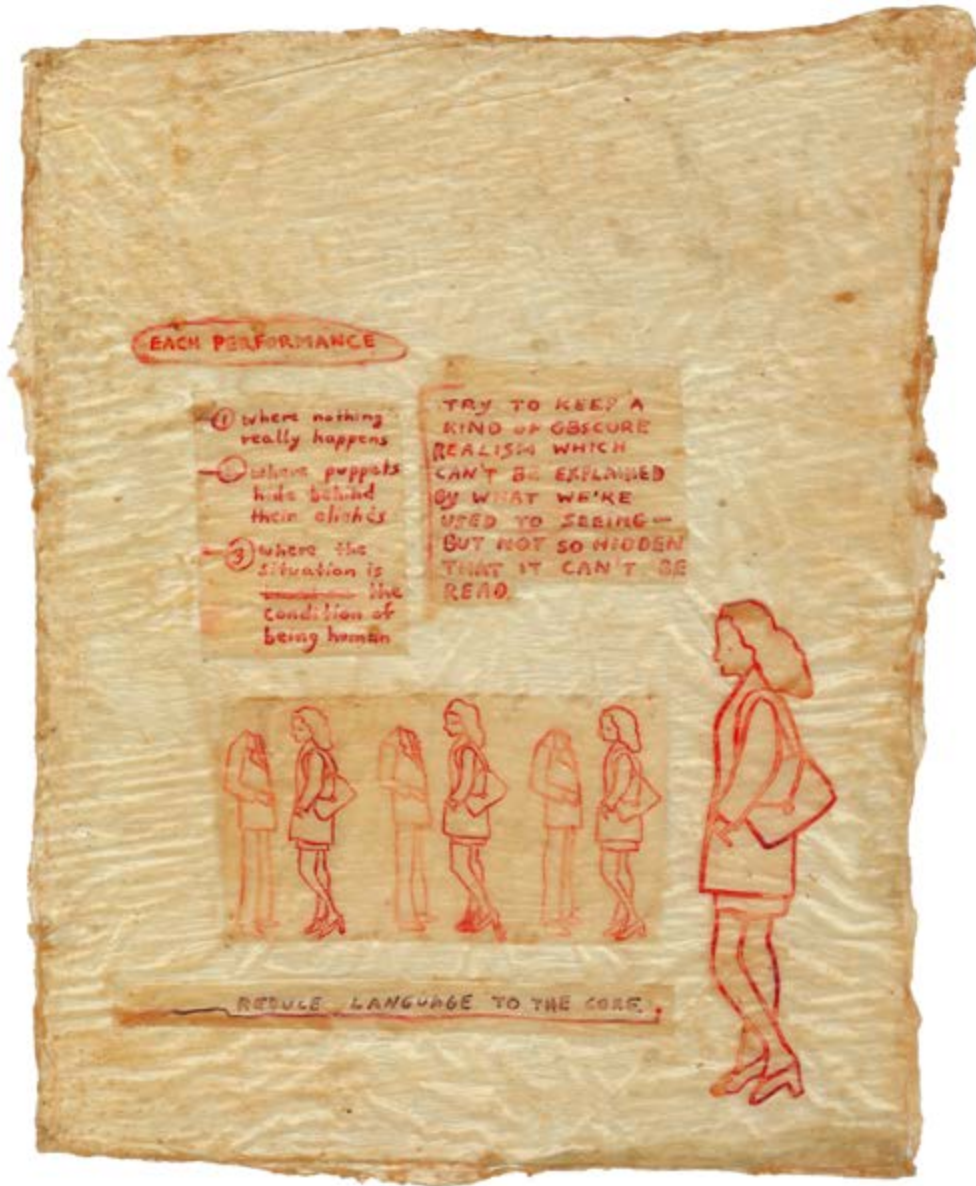 EACH PERFORMANCE
① where nothing
really happens
② where puppets
hide behind
their clichés
③ where the
situation is
the
condition of
being human
TRY TO KEEP A
KIND OF OBSCURE
REALISM WHICH
CAN'T BE EXPLAINED
BY WHAT WE'RE
USED TO SEEING—
BUT NOT SO HIDDEN
THAT IT CAN'T BE
READ
REDUCE LANGUAGE TO THE CORE.